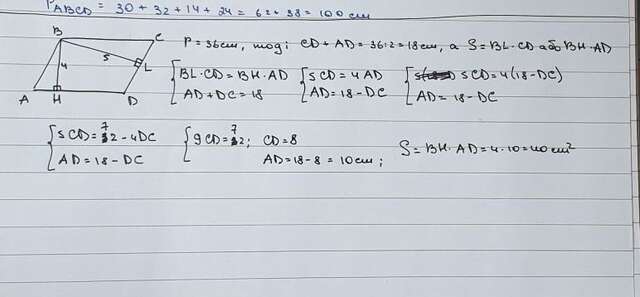 P_ABCD = 30 + 32 + 14 + 24 = 62 + 38 = 100 cm
B C
P = 36cm, тоді CD + AD = 36:2 = 18cm, а S = BL · CD або BH · AD
4 5 L
A H D
{ BL · CD = BH · AD
AD + DC = 18
{ 5CD = 4AD
AD = 18 - DC
{ 5CD = 4(18 - DC)
AD = 18 - DC
{ 5CD = 72 - 4DC
AD = 18 - DC
{ 9CD = 72; CD = 8
AD = 18 - 8 = 10cm;
S = BH · AD = 4 · 10 = 40cm²